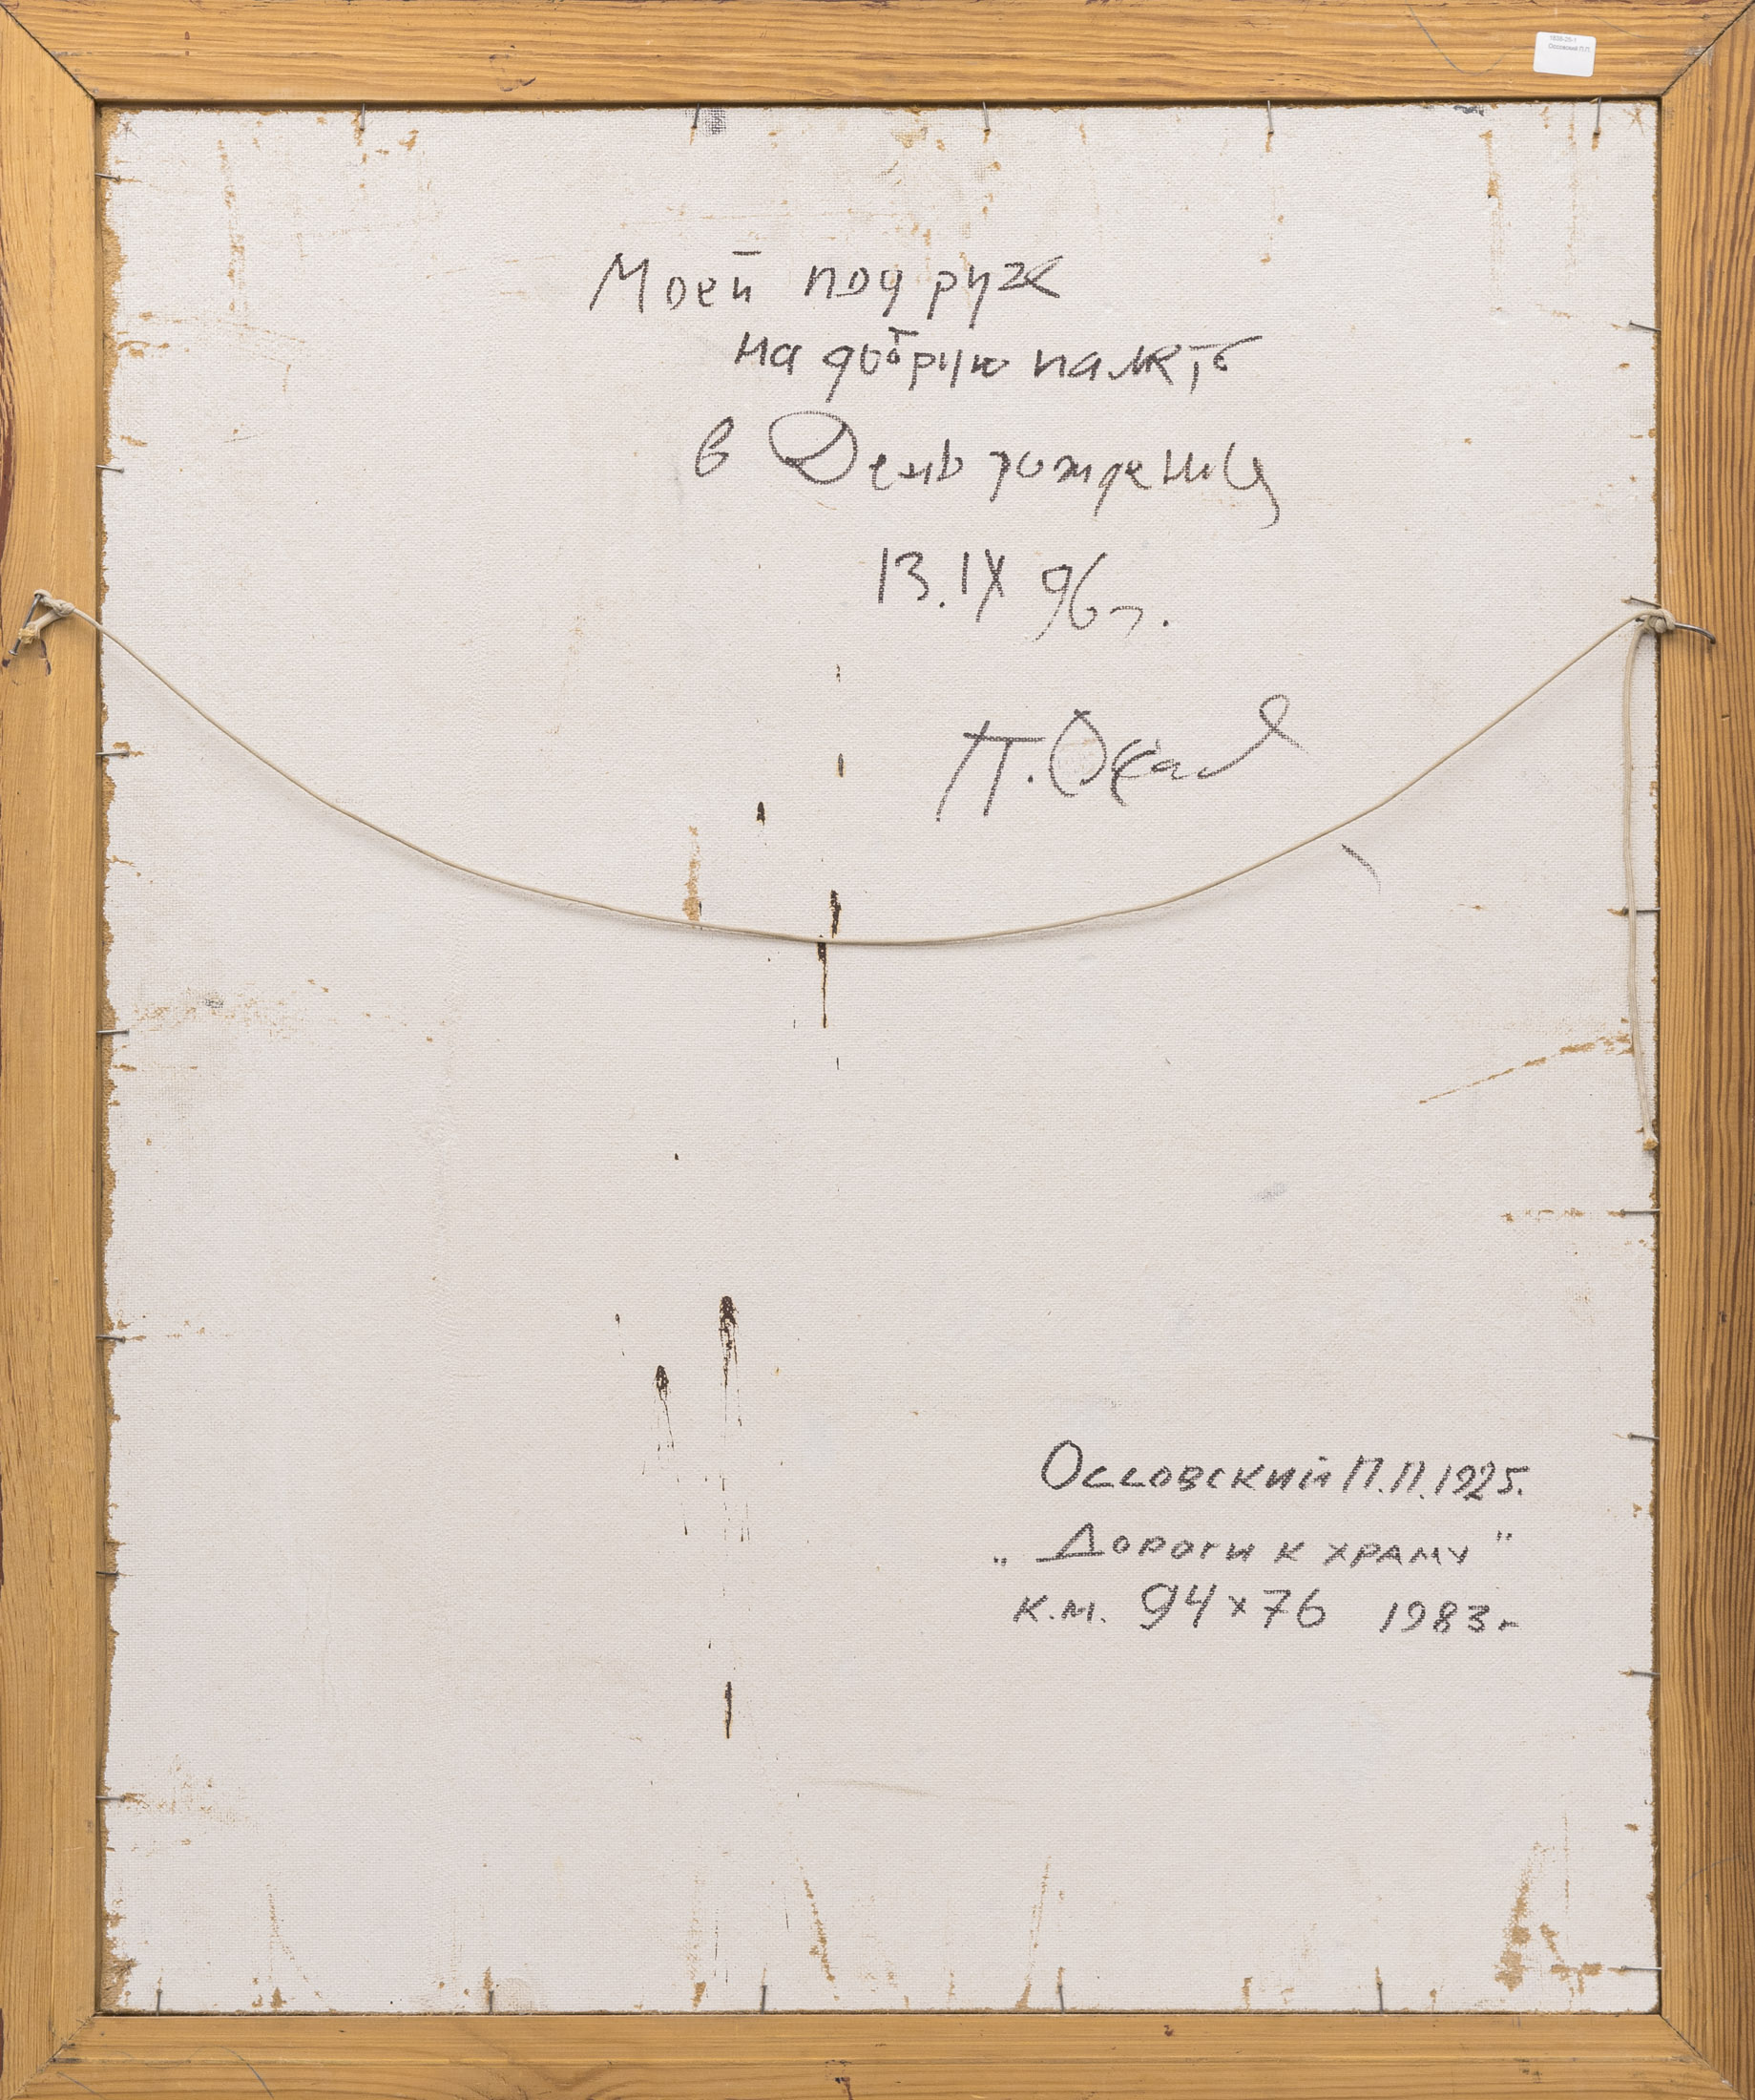 1838-25-1
Оссовский П.П.
Моей подруж
на добрую память
в День рождения
13.IX 96 г.
П. Осс
Оссовский П.П. 1925.
„Дороги к храму"
к.м. 94 x 76 1983 г